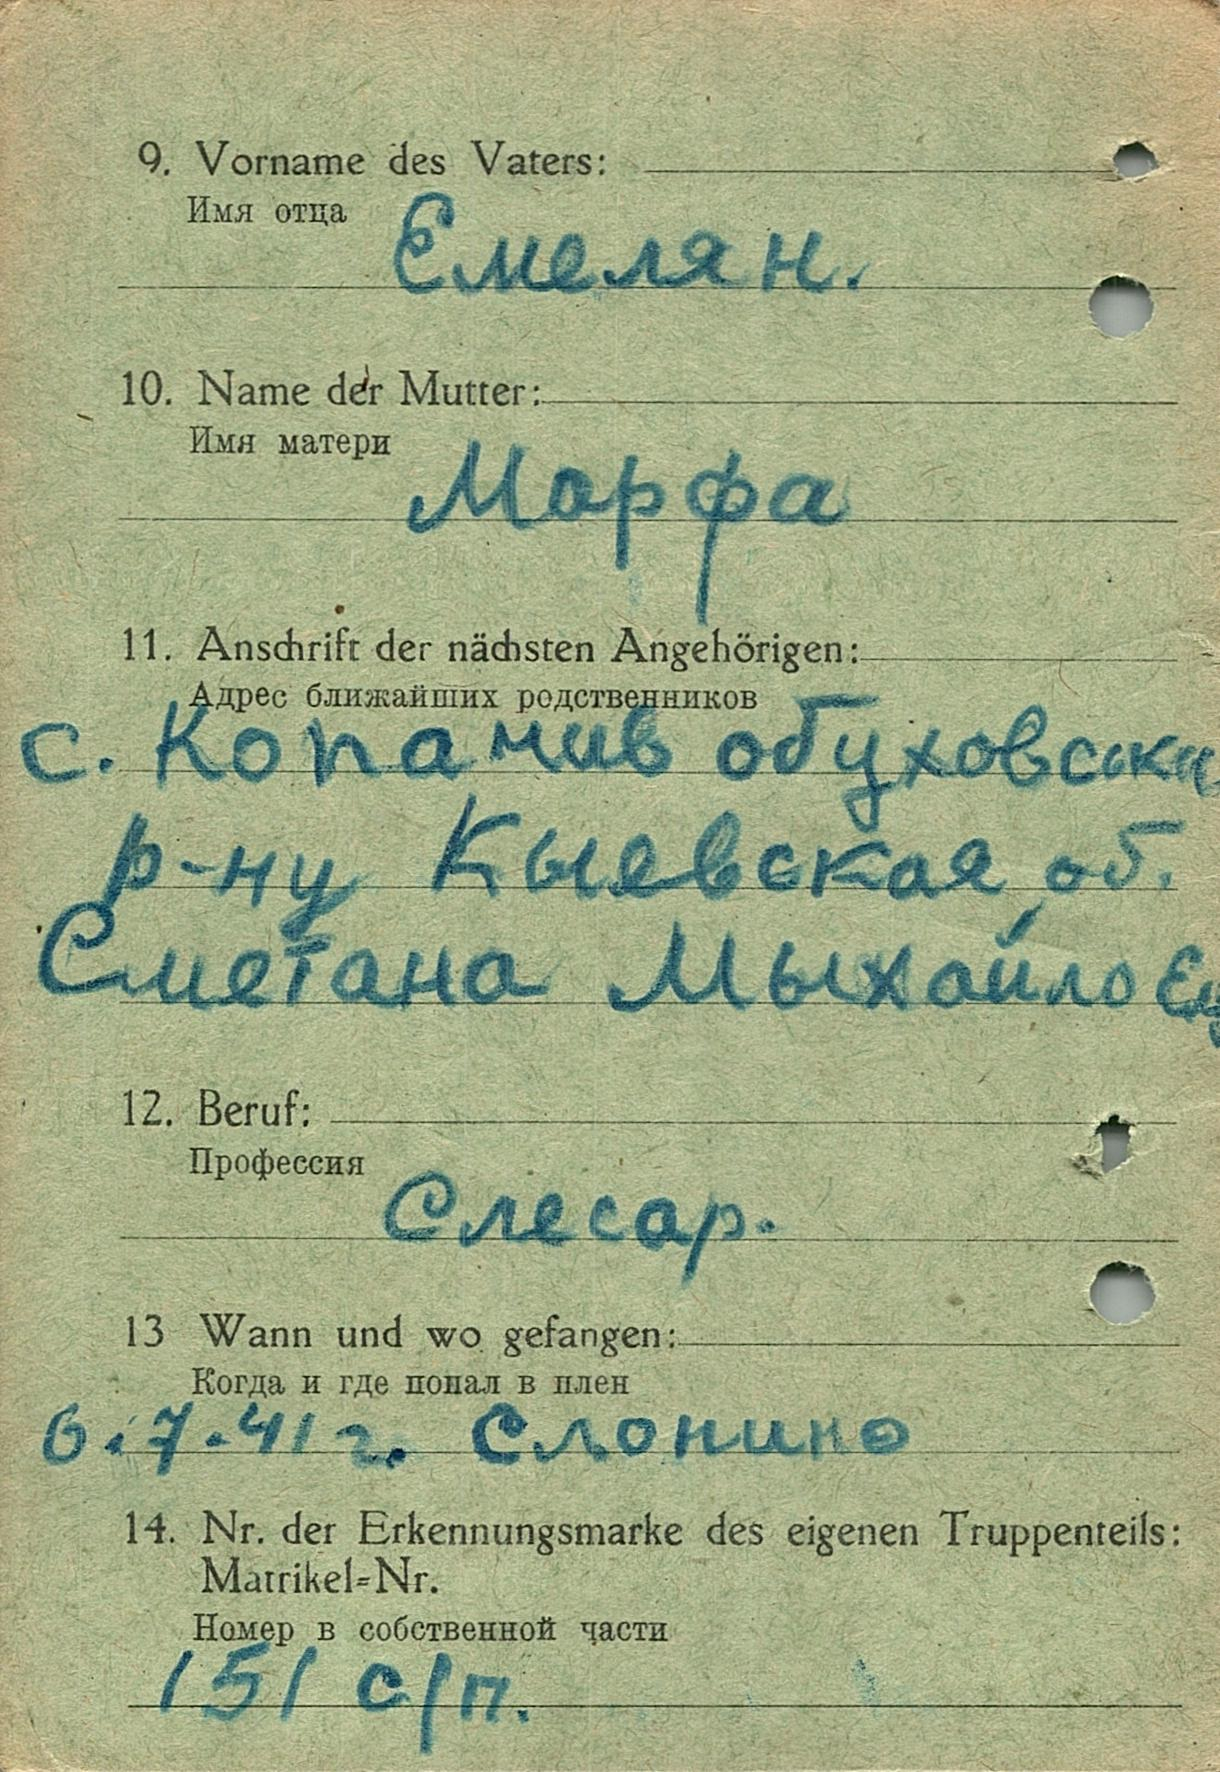 9. Vorname des Vaters:
Имя отца
Емелян.
10. Name der Mutter:
Имя матери
Марфа
11. Anschrift der nächsten Angehörigen:
Адрес ближайших родственников
с. Копачив обуховськи
р-ну Кыевская об.
Сметана Мыхайло Ем
12. Beruf:
Профессия
Слесар.
13 Wann und wo gefangen:
Когда и где попал в плен
6.7.41 г. Слонино
14. Nr. der Erkennungsmarke des eigenen Truppenteils:
Matrikel=Nr.
Номер в собственной части
151 с/п.